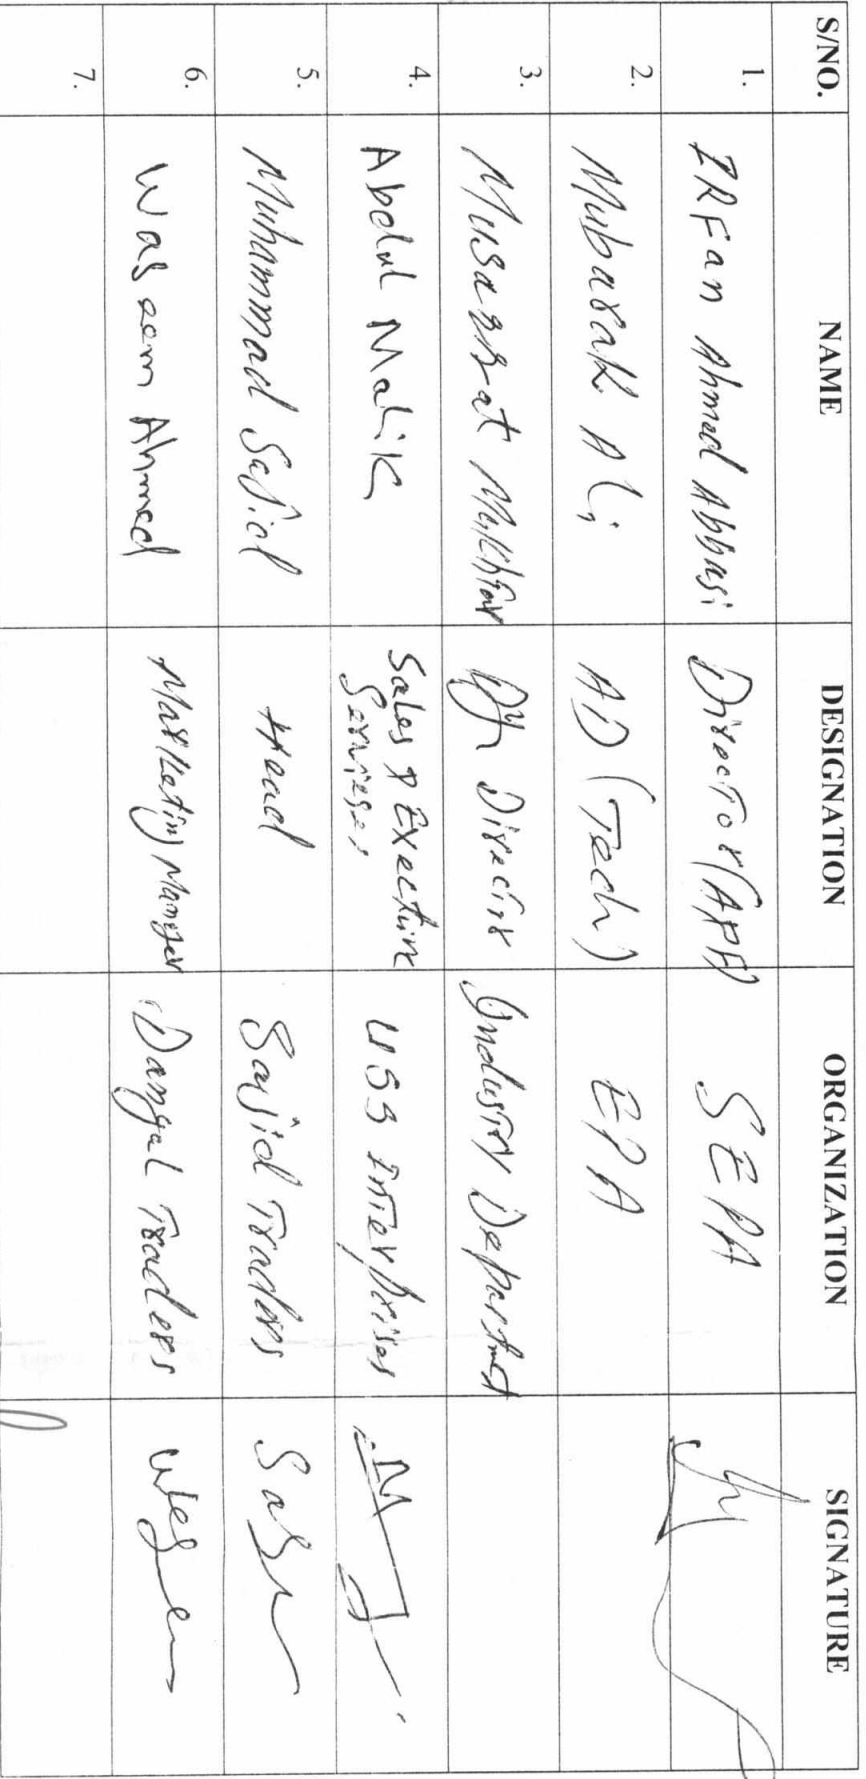 S/NO. NAME DESIGNATION ORGANIZATION SIGNATURE
1. IRFan Ahmed Abbasi Director (APA) SEPA
2. Mubarak Ali AD (Tech) EPA
3. Musarrat Mukhtar Dy Director Industry Department
4. Abdul Malik Sales & Exective US9 Interprises
Servieses
5. Muhammad Sajid Head Sajid Traders
6. Waseem Ahmed Marketing Manger Dangal Traders
7.